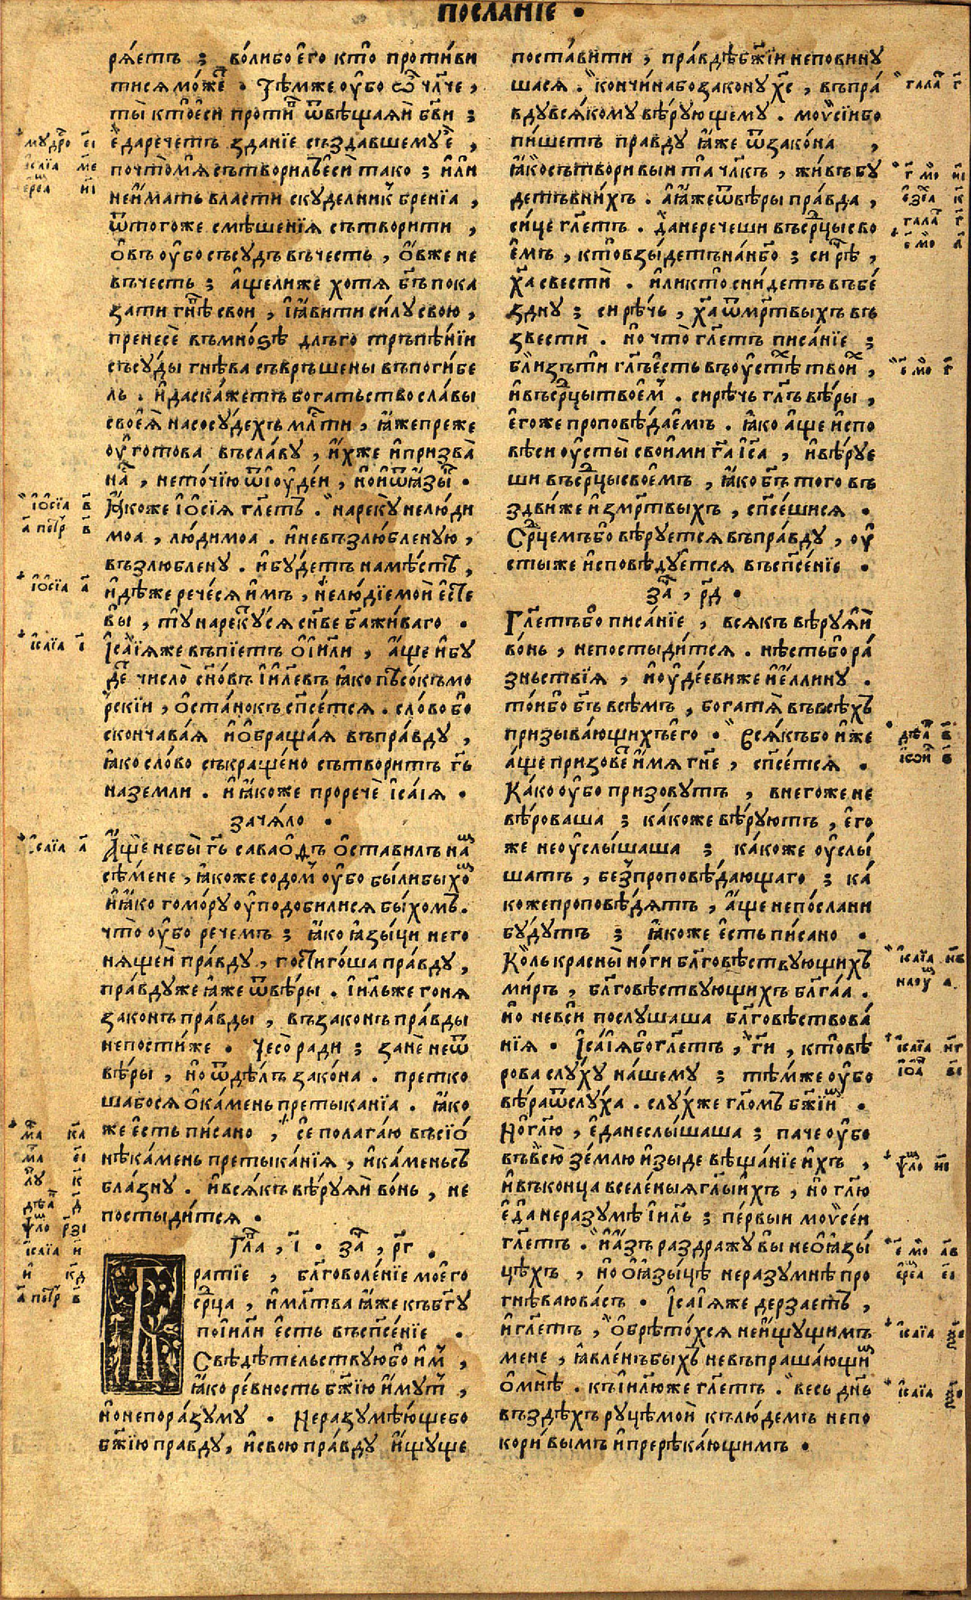 посланїе .
рѧ́етъ ; во́либо е҆го̀ кто̀ проти́ви
тисѧ може . Тѣ́мже оу҆́бо ѽ чл҃че ,
ты̀ кто̀ е҆сѝ проти ѿвѣща́ѧй бг҃ви ;
е҆да̀ рече́тъ зда́нїе създа́вшемуе ,
почто̀ мѧ сътвори́лъ е҆сѝ та́ко ; и҆лѝ
не и҆́мать вла́сти скуде́лник бре́нїа ,
ѿ тогоже смѣше́нїѧ сътвори́ти ,
ѻ҆́въ оу҆́бо съсу́дъ въ че́сть , ѻ҆́въже не
въ че́сть ; а҆́щелиже хотѧ̀ бг҃ъ пока
за́ти гнѣ́в сво́и , и҆ ꙗ҆ви́ти си́лу свою̀ ,
пренесѐ въ мно́ѕѣ длъ́го трьпѣ́нїи
съсу́ды гнѣ́ва съврьше́ны въ поги́бе
ль . и҆ да ска́жетъ бога́тьство сла́вы
своеѧ̀ на сосу́дехъ мл҃сти , ꙗ҆́же преже
оу҆гото́ва въ сла́ву , и҆́хже и҆ призва̀
на , не то́чїю ѿ і҆оуде́и , но и҆ ѿ ꙗ҆зы .
Ꙗ҆́коже і҆ѻ҆сі́ѧ гл҃етъ . нареку̀ не лю́ди
моа̀ , лю́ди моа̀ . и҆ не възлю́бленую ,
възлю́блену . и҆ бу́детъ на мѣ́стѣ ,
и҆дѣ́же рече́сѧ и҆́мъ , не лю́дїе мои̑ е҆сте
вы̀ , ту̀ нареку́сѧ сн҃ве бг҃а жива́го .
І҆са́їѧже въпїе́тъ ѻ҆ і҆и҃ли , а҆́ще и҆ бу
де число̀ сн҃о́въ і҆и҃левъ ꙗ҆́ко пѣсо́къ мо
рскїи , ѻ҆ста́нокъ сп҃се́тсѧ . сло́во бо
сконча́ваѧ и҆ ѻ҆браща́ѧ въ пра́вду ,
ꙗ҆́ко сло́во съкраще́но сътвори́тъ гь҃
на земли . и҆ ꙗ҆́коже проречѐ і҆са́іѧ .
зача́ло .
А҆́ще не бы̀ гь҃ савао́дъ ѻ҆ста́вилъ на
сѣ́мене , ꙗ҆́коже содом оу҆́бо бы́ли бы хо
и҆ ꙗ҆́ко гомо́ру оу҆подо́билисѧ бы́хомъ .
что̀ оу҆́бо рече́мъ ; ꙗ҆́ко ꙗ҆зы́ци него
нѧ́щеи пра́вду , пости́гоша пра́вду ,
пра́вдуже ꙗ҆́же ѿ вѣ́ры . і҆и҃льже гонѧ
зако́нъ пра́вды , въ зако́нъ пра́вды
не пости́же . Чесо̀ ра́ди ; занѐ не ѿ
вѣ́ры , но ѿ дѣ́лъ зако́на . претко
ша́босѧ ѻ҆ ка́мень претыка́нїа . ꙗ҆́ко
же є҆́сть пи́сано , сѐ полага́ю въ сїо́
нѣ ка́мень претыка́нїѧ , и҆ ка́мень съ
бла́зну . и҆ всѧ́къ вѣ́руѧй во́нь , не
постыди́тсѧ .
Гл҃а , і҃ . за , рг҃ .
Бра́тїе , бл҃говоле́нїе моего
ср҃ца , и҆ мл҃тва ꙗ҆́же къ бг҃у
по і҆и҃ли є҆́сть въ сп҃се́нїе .
Свѣдѣ́тельствую бо и҆м ,
ꙗ҆́ко ре́вность бж҃їю и҆́мут ,
но не по ра́зуму . Не разумѣ́юще бо
бж҃їю пра́вду , и҆ свою̀ пра́вду и҆́щуще
поста́вити , пра́вдѣ бж҃їи не повину́
шасѧ . кончи́на бо зако́ну хс҃ , въ пра́
вду всѧ́кому вѣ́рующему . моѵсі́и бо
пи́шетъ пра́вду ꙗ҆́же ѿ зако́на ,
ꙗ҆́ко сътвори́выи та̀ чл҃къ , жи́въ бу
детъ в ни́хъ . а҆ ꙗ҆́же ѿ вѣ́ры пра́вда ,
си́це гл҃етъ . да не рече́ши въ ср҃цы сво
е҆́мъ , кто̀ взы́детъ на не́бо ; си рѣ ,
ха҃ свестѝ . и҆лѝ кто̀ сни́детъ въ бе́
здну ; си рѣ́чь , ха҃ ѿ мр҃твыхъ въ
звестѝ . но что̀ гл҃етъ писа́нїе ;
бли́зъ ти гл҃ъ є҆́сть въ оу҆стѣ твои ,
и҆ въ ср҃цы твоем . си рѣ́чь гл҃ъ вѣ́ры ,
е҆го́же проповѣ́даемъ . ꙗ҆́ко а҆́ще и҆спо
вѣ́си оу҆сты̀ свои́ми га҃ і҆с҃а , и҆ вѣ́руе
ши въ ср҃цы свое́мъ , ꙗ҆́ко бг҃ъ того въ
здви́же и҆з мр҃твыхъ , сп҃се́шисѧ .
Ср҃цемъ бо вѣ́руетсѧ въ пра́вду , оу҆
сты́же и҆сповѣ́дуетсѧ въ сп҃се́нїе .
за , рд҃ .
Гл҃етъ бо писа́нїе , всѧ́къ вѣ́руѧй
во́нь , не постыди́тсѧ . нѣ́сть бо ра́
зньствїѧ , і҆оуде́еви же и҆ е҆́ллину .
то́и бо бг҃ъ всѣ́мъ , богатѧ̀ въ всѣ́хъ
призыва́ющихъ е҆го̀ . Всѧ́къ бо и҆́же
а҆́ще призове́ и҆́мѧ гн҃е , сп҃се́тсѧ .
Ка́ко оу҆́бо призову́тъ , в него́же не
вѣ́роваша ; ка́коже вѣ́руютъ , е҆го̀
же не оу҆слы́шаша ; ка́коже оу҆слы́
шатъ , без проповѣ́дающаго ; ка́
коже проповѣ́дѧтъ , а҆́ще не по́слани
бу́дутъ ; ꙗ҆́коже є҆́сть пи́сано .
Ко́ль красны̀ но́ги бл҃говѣству́ющихъ
ми́ръ , бл҃говѣству́ющихъ бл҃га́а .
но не всѝ послу́шаша бл҃говѣствова́
нїѧ . І҆са́іѧ бо гл҃етъ , ги҃ , кто̀ вѣ́
рова слу́ху на́шему ; тѣ́мже оу҆́бо
вѣ́ра ѿ слу́ха . слу́хже гл҃омъ бж҃їи .
Но гл҃ю , е҆да̀ не слы́шаша ; па́че оу҆́бо
въ всю̀ зе́млю и҆зы́де вѣща́нїе и҆́хъ ,
и҆ въ конца вселе́ныѧ гл҃ы и҆́хъ , но гл҃ю
е҆да̀ не разумѣ̀ і҆и҃ль ; пе́рвыи моѵсе́и
гл҃етъ . и҆ а҆́зъ раздражу̀ вы̀ не ѻ҆ ꙗ҆зы́
цѣхъ , но ѻ҆ ꙗ҆зы́цѣ неразу́мнѣ про
гнѣ́ваю ва́съ . І҆са́іѧже дерза́етъ ,
и҆ гл҃етъ , ѻ҆брѣто́хсѧ не и҆́щущимъ
мене , ꙗ҆вле́нъ бы́хъ не въпраша́ющи
ѻ҆ мнѣ̀ . къ і҆и҃люже гл҃етъ . весь дн҃ь
въздѣ́хъ ру́цѣ мои̑ къ лю́демъ непо
кори́вымъ и҆ пререка́ющимъ .